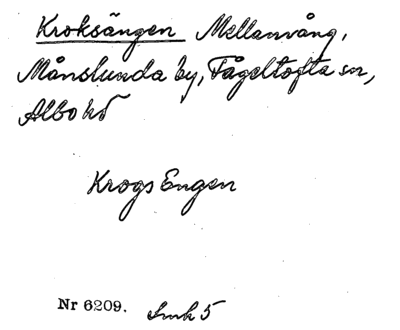 Kroksängen Mellanvång,
Månslunda by, Fågeltofta sn,
Albo hd
Krogs Engen
Nr 6209. Smk 5